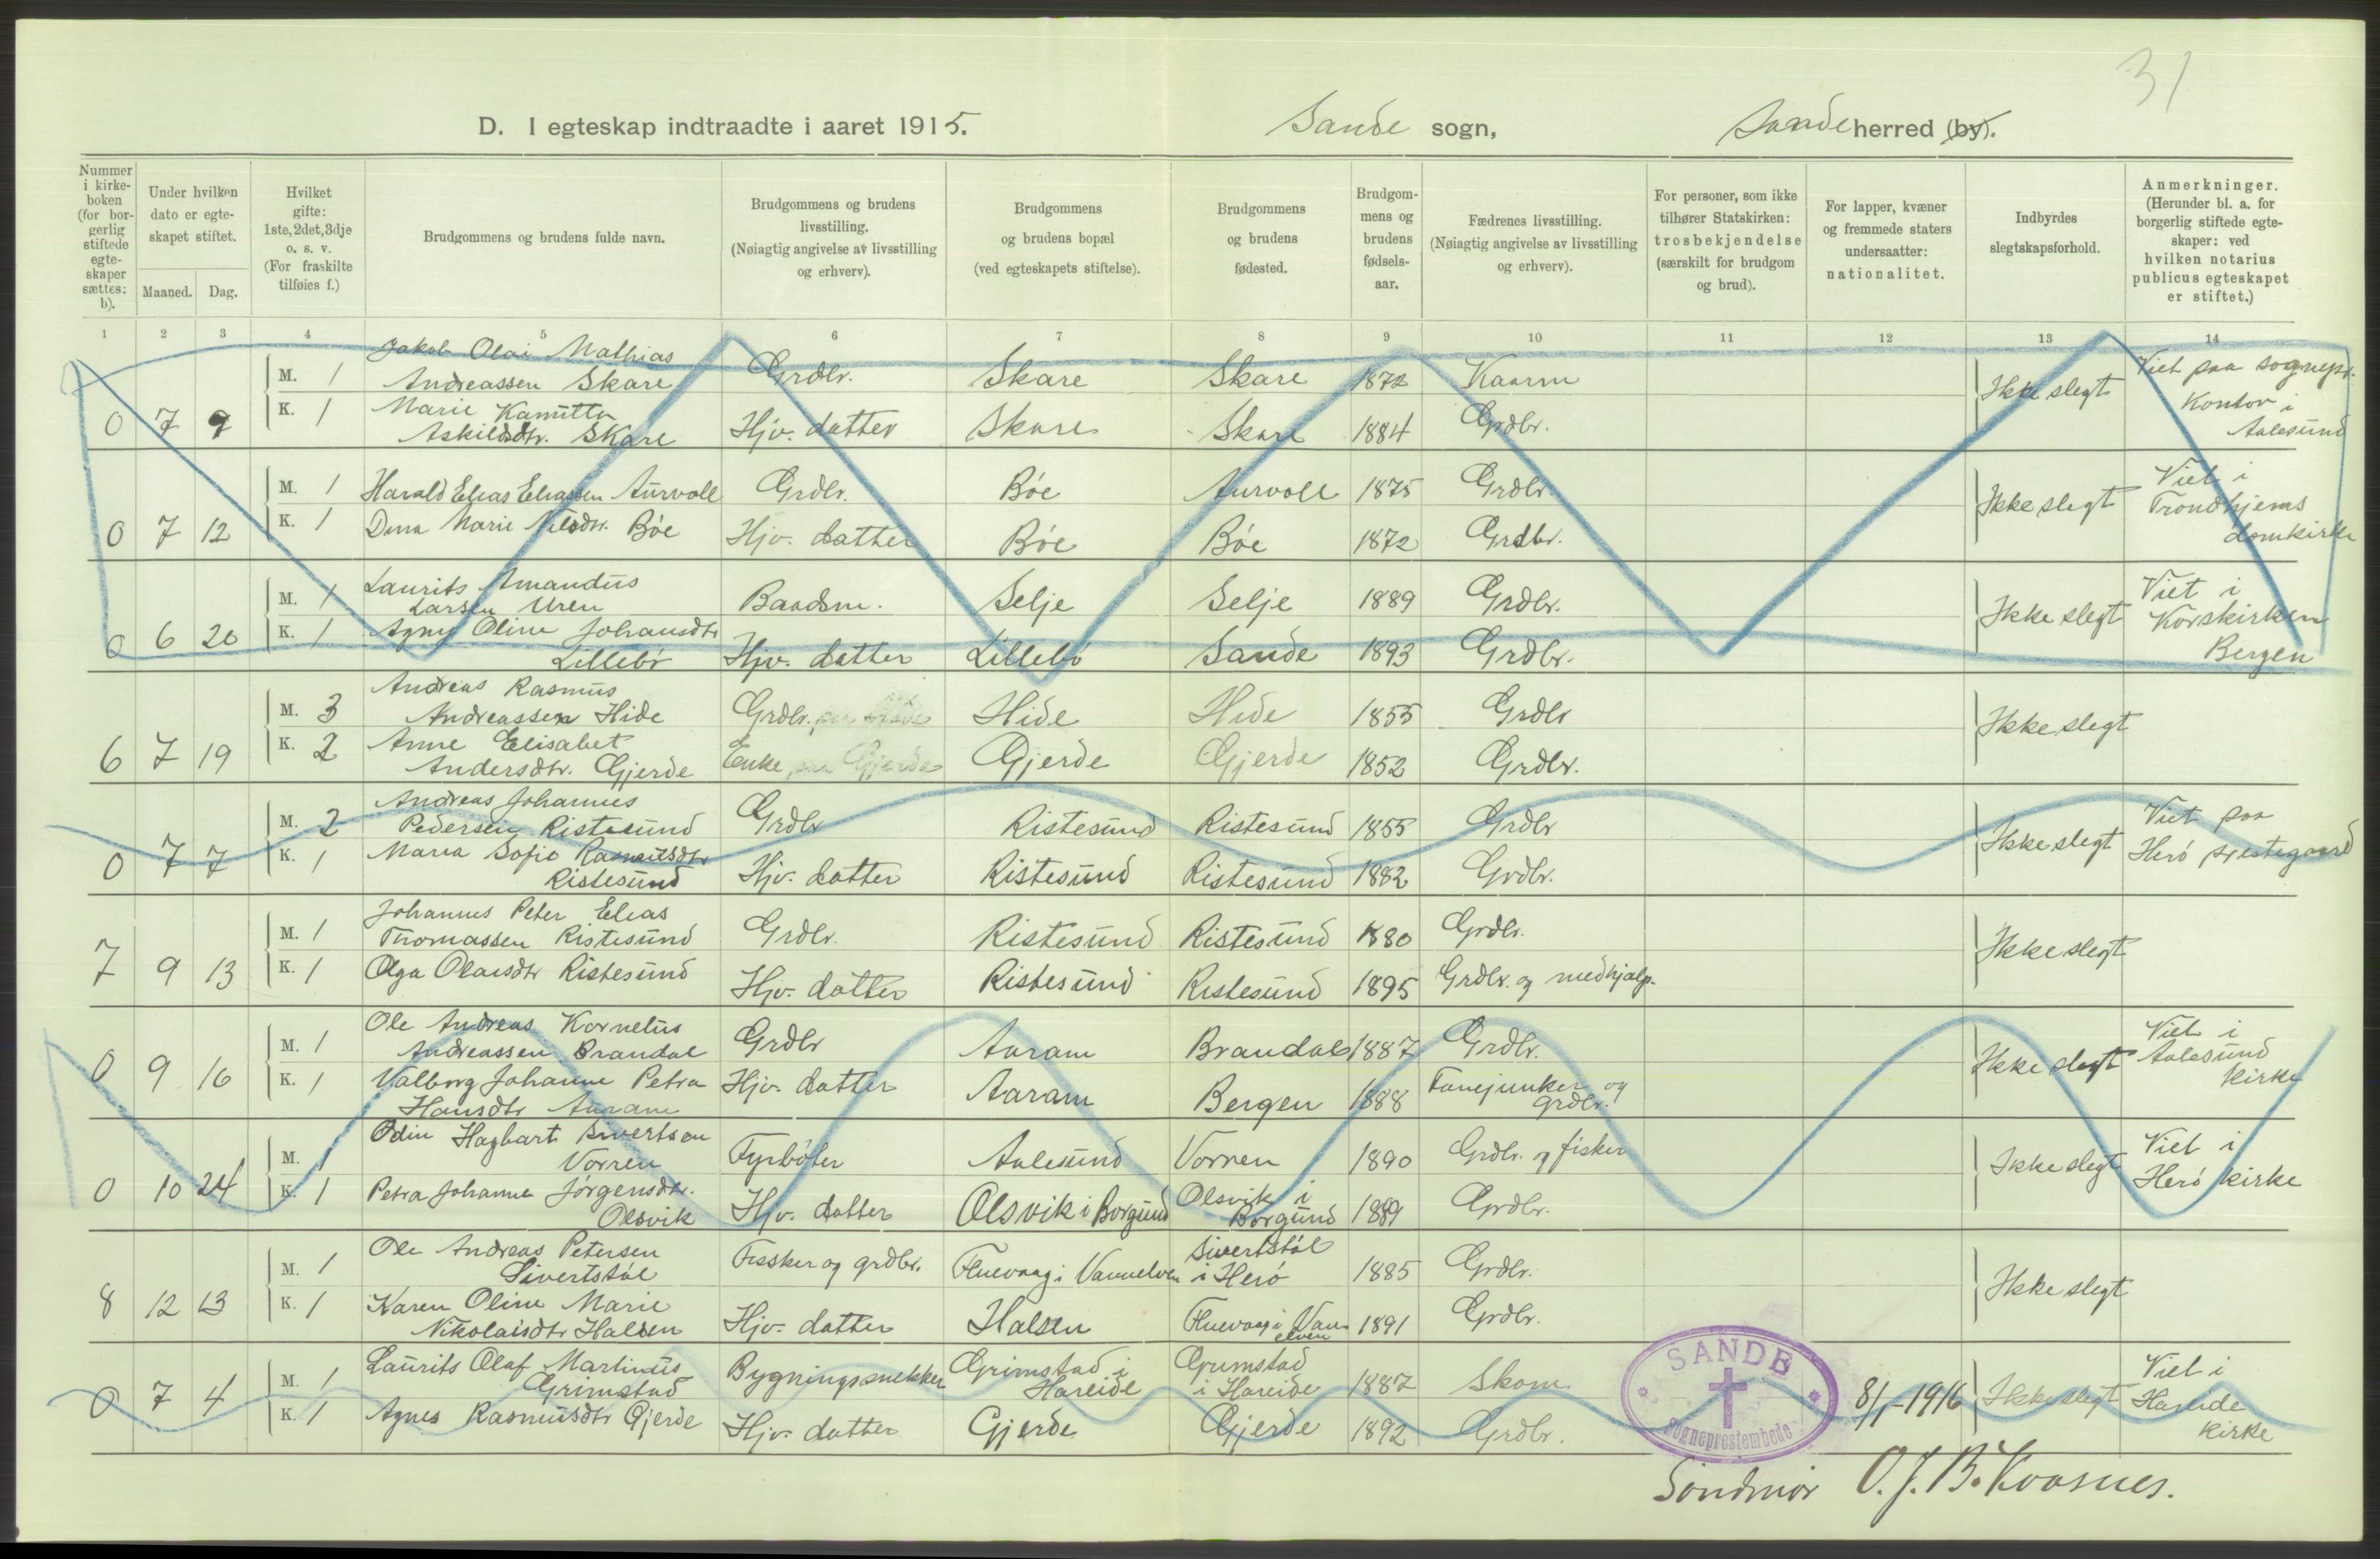 31
D. I egteskap indtraadte i aaret 1915. Sande sogn, Sande herred (by).
Nummer i kirkeboken (for borgerlig stiftede egteskaper sættes: b).
Under hvilken dato er egteskapet stiftet.
Maaned. Dag.
Hvilket gifte: 1ste, 2det, 3dje o. s. v. (For fraskilte tilføies f.)
Brudgommens og brudens fulde navn.
Brudgommens og brudens livsstilling. (Nøiagtig angivelse av livsstilling og erhverv).
Brudgommens og brudens bopæl (ved egteskapets stiftelse).
Brudgommens og brudens fødested.
Brudgommens og brudens fødselsaar.
Fædrenes livsstilling. (Nøiagtig angivelse av livsstilling og erhverv).
For personer, som ikke tilhører Statskirken: trosbekjendelse (særskilt for brudgom og brud).
For lapper, kvæner og fremmede staters undersaatter: nationalitet.
Indbyrdes slegtskapsforhold.
Anmerkninger. (Herunder bl. a. for borgerlig stiftede egteskaper: ved hvilken notarius publicus egteskapet er stiftet.)
1 2 3 4 5 6 7 8 9 10 11 12 13 14
Jakob Olai Mathias
M. 1 Andreassen Skare Grdbr. Skare Skare 1872 Kaarm Ikke slegt Viet paa sognepr. Kontor i Aalesund
0 7 9 K. 1 Marie Kamitta
Askildsdtr. Skare Hjv. datter Skare Skare 1884 Grdbr.
M. 1 Harald Elias Eliassen Aurvoll Grdbr. Bøe Aurvoll 1875 Grdbr. Ikke slegt Viet i Trondhjems domkirke
0 7 12 K. 1 Dina Marie Nilsdtr. Bøe Hjv. datter Bøe Bøe 1872 Grdbr.
Laurits Amandus
M. 1 Larsen Uren Baadsm. Selje Selje 1889 Grdbr. Ikke slegt Viet i Korskirken Bergen
0 6 20 K. 1 Agny Oline Johansdtr
Lillebø Hjv. datter Lillebø Sande 1893 Grdbr.
Andreas Rasmus
M. 3 Andreassen Hide Grdbr. Hide Hide 1855 Grdbr Ikke slegt
6 7 19 K. 2 Anne Elisabet
Andersdtr. Gjerde Enke paa Gjerde Gjerde Gjerde 1852 Grdbr.
Andreas Johannes
M. 2 Pedersen Ristesund Grdbr Ristesund Ristesund 1855 Grdbr Ikke slegt Viet paa Herø prestegaard
0 7 7 K. 1 Maria Sofie Rasmusdtr
Ristesund Hjv. datter Ristesund Ristesund 1882 Grdbr.
Johannes Peter Elias
M. 1 Thomassen Ristesund Grdbr. Ristesund Ristesund 1880 Grdbr. Ikke slegt
7 9 13 K. 1 Olga Olaisdtr Ristesund Hjv. datter Ristesund Ristesund 1895 Grdbr. og medhjælp.
Ole Andreas Kornelius
M. 1 Andreassen Brandal Grdbr Aaram Brandal 1887 Grdbr. Ikke slegt Viet i Aalesund kirke
0 9 16 K. 1 Valborg Johanne Petra
Hansdtr Aaram Hjv. datter Aaram Bergen 1888 Fanejunker og grdbr.
Odin Hagbart Sivertsen
M. 1 Vorren Fyrbøter Aalesund Vorren 1890 Grdbr. og fisker Ikke slegt Viet i Herø kirke
0 10 24 K. 1 Petra Johanne Jørgensdtr.
Olsvik Hjv. datter Olsvik i Borgund Olsvik i Borgund 1889 Grdbr.
Ole Andreas Petersen
M. 1 Sivertstøl Fissker og grdbr. Fluevaag i Vannelven Sivertstøl i Herø 1885 Grdbr. Ikke slegt
8 12 13 K. 1 Karen Oline Marie
Nikolaisdtr Halsen Hjv. datter Halsen Fluevaag i Vanelven 1891 Grdbr.
Laurits Olaf Martinus
M. 1 Grimstad Bygningssnekker Grimstad i Hareide Grimstad i Hareide 1887 Skom. Ikke slegt Viet i Hareide kirke
0 7 4 K. 1 Agnes Rasmusdtr Gjerde Hjv. datter Gjerde Gjerde 1892 Grdbr.
SANDE
Sogneprestembede
8/1-1916
Søndmør O. J. B. Kvasnes.